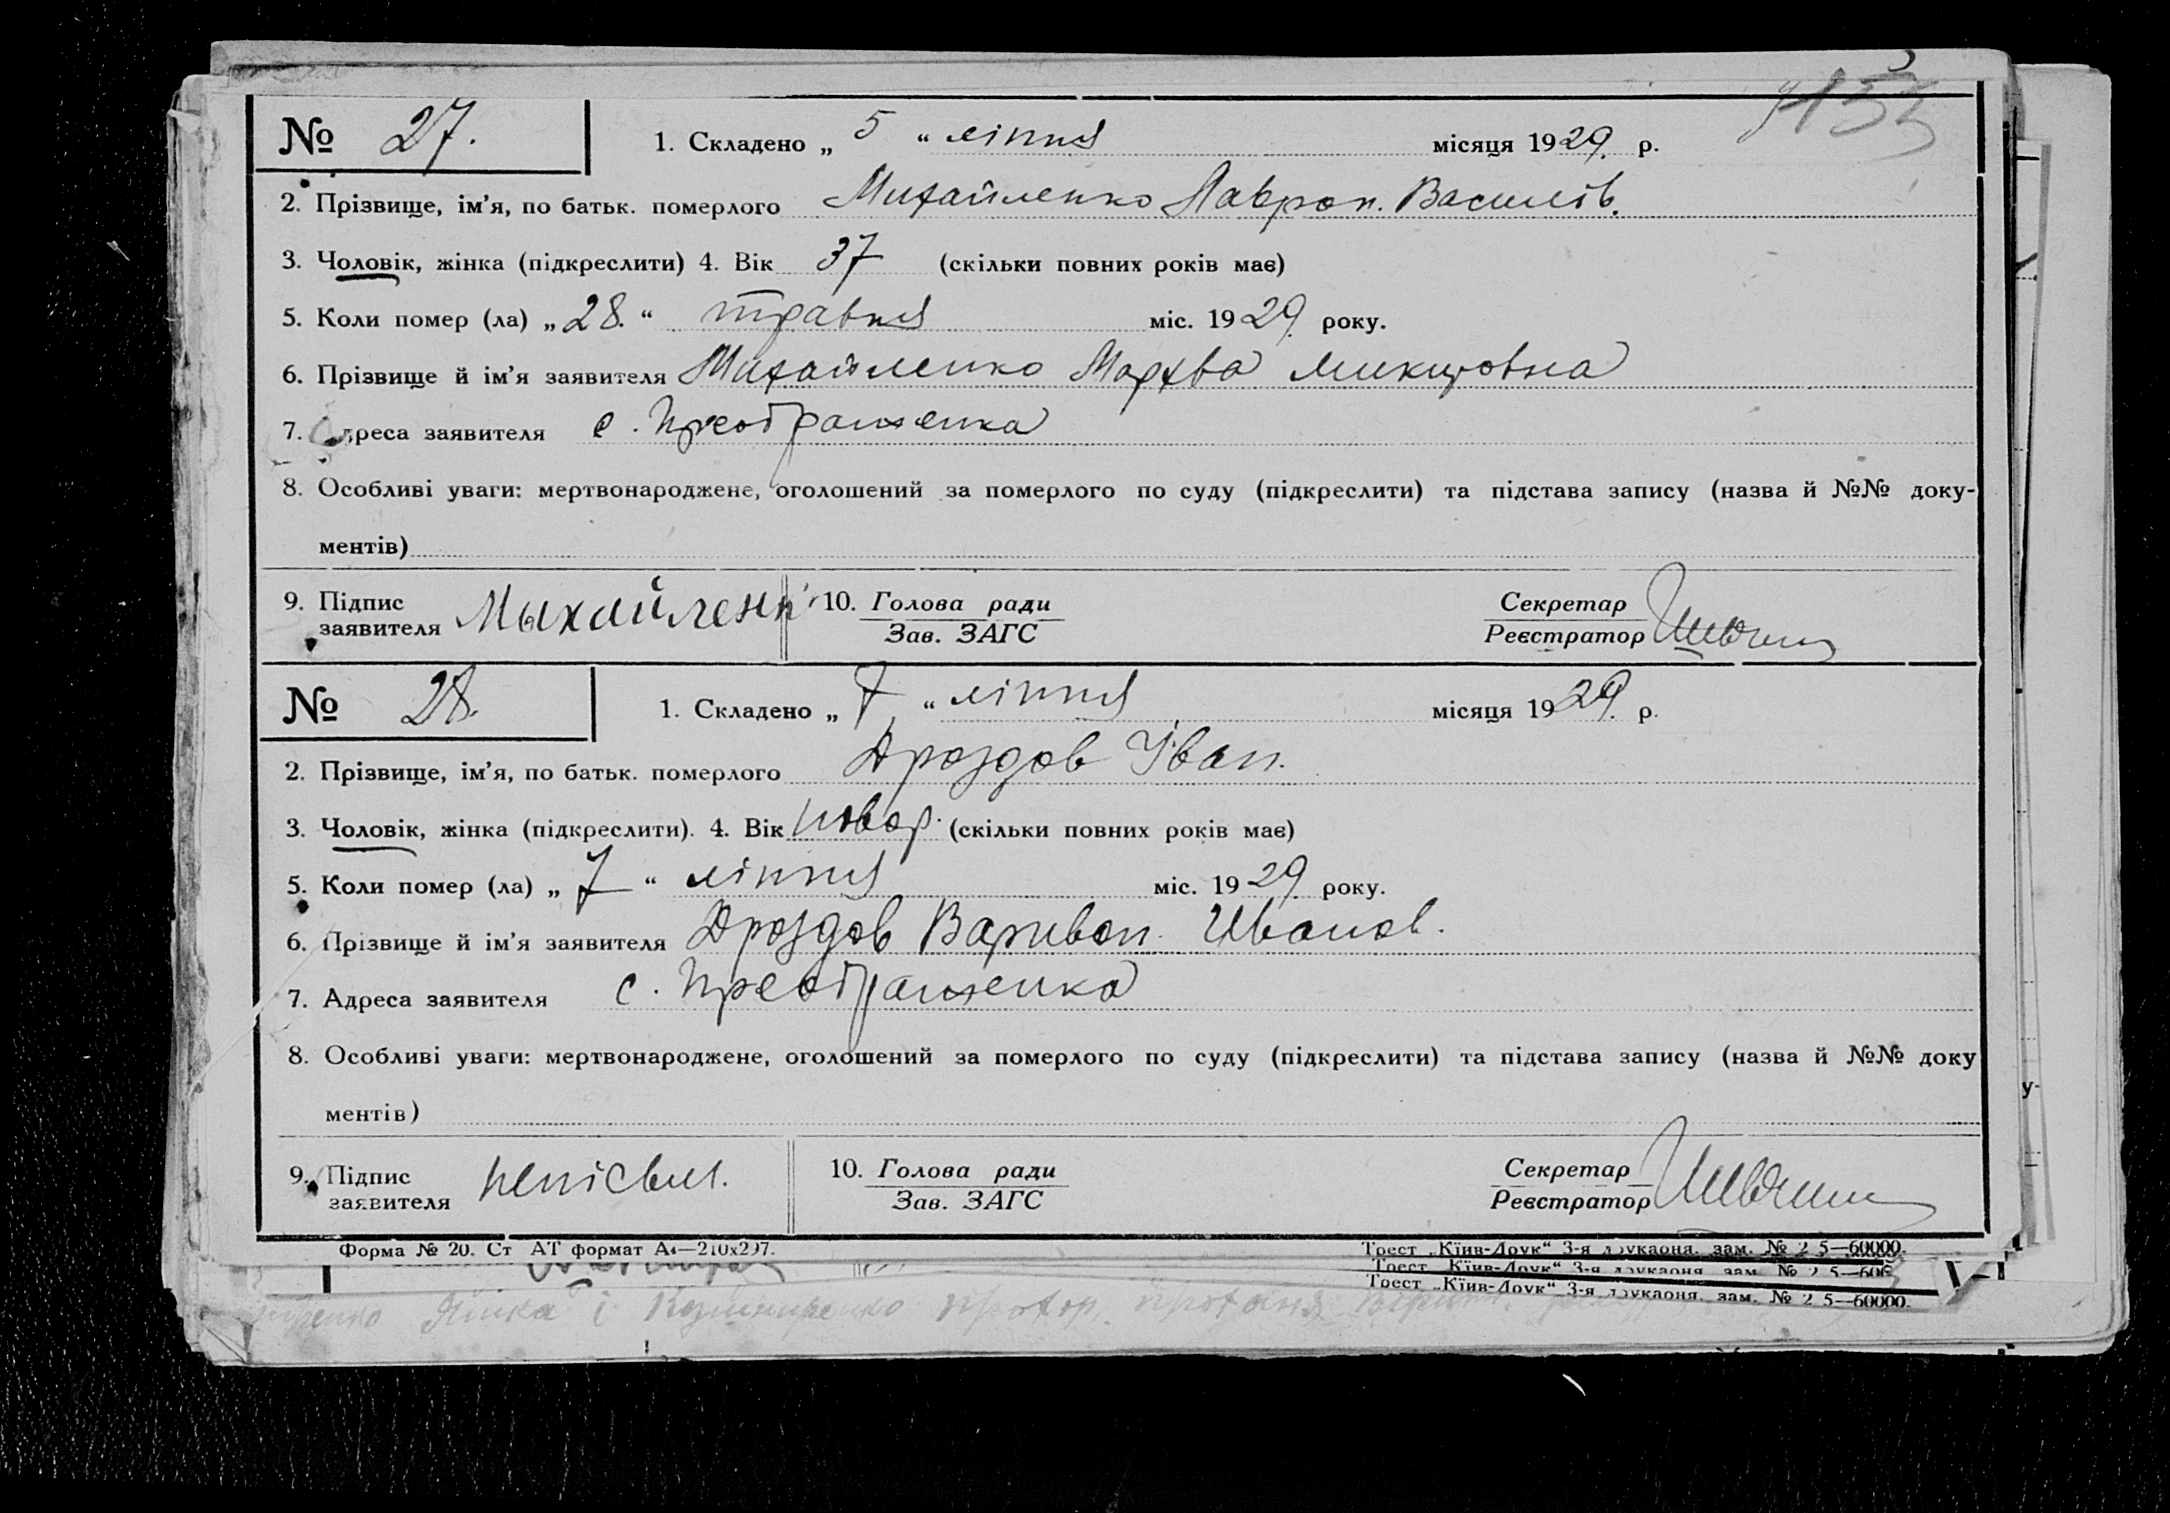 № 27. 1. Складено „ 5 “ ліпня місяця 1929. р.
2. Прізвище, ім’я, по батьк. померлого Михайленко Лаврон. Василів.
3. Чоловік, жінка (підкреслити) 4. Вік 37 (скільки повних років має)
5. Коли помер (ла) „28.“ травня міс. 1929. року.
6. Прізвище й ім’я заявителя Михайленко Мархва
7. Адреса заявителя с. Преображенка
8. Особливі уваги: мертвонароджене, оголошений за померлого по суду (підкреслити) та підстава запису (назва й №№ доку-
ментів)
9. Підпис заявителя Мыхайленк 10. Голова ради Зав. ЗАГС Секретар Реєстратор
№ 28. 1. Складено „ 7 “ ліпня місяця 1929. р.
2. Прізвище, ім’я, по батьк. померлого Дроздов Іван.
3. Чоловік, жінка (підкреслити). 4. Вік новор. (скільки повних років має)
5. Коли помер (ла) „ 7 “ ліпня міс. 1929 року.
6. Прізвище й ім’я заявителя Дроздов Варивон. Иванов.
7. Адреса заявителя с. Преображенка
8. Особливі уваги: мертвонароджене, оголошений за померлого по суду (підкреслити) та підстава запису (назва й №№ доку
ментів)
9. Підпис заявителя непісьм. 10. Голова ради Зав. ЗАГС Секретар Реєстратор
Форма № 20. Ст АТ формат А4—210х297. Трест „Київ-Друк“ 3-я друкарня. зам. № 2 5—60000.
Трест „Київ-Друк“ 3-я друкарня. зам. № 2 5—606
Трест „Київ-Друк“ 3-я друкарня. зам. № 2 5—60000.